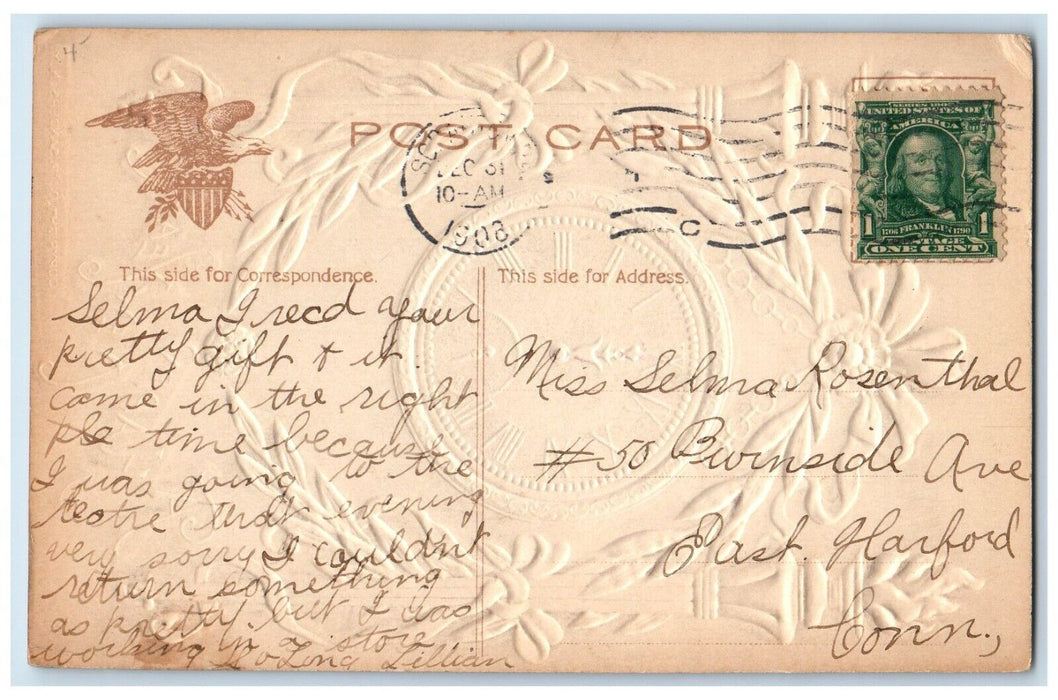 45
POST CARD
DEC 31
10-AM
1908
C
SERIES 1902
UNITED STATES OF
AMERICA
1 1
1706 FRANKLIN 1790
POSTAGE
ONE CENT
This side for Correspondence.
Selma I recd your
pretty gift & it
came in the right
time because
I was going to the
teatre that evening
very sorry I couldn't
return something
as pretty but I was
working in a store
So Long Lillian
This side for Address.
Miss Selma Rosenthal
#50 Burnside Ave
East. Harford
Conn.,